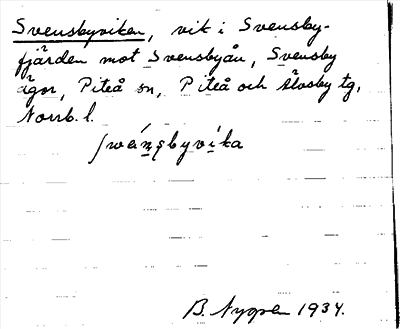 Svensbyviken, vik i Svensby-
fjärden mot Svensbyån, Svensby
ägor, Piteå sn, Piteå och Älvsby tg,
Norrb. l.
B. Nygren 1934.